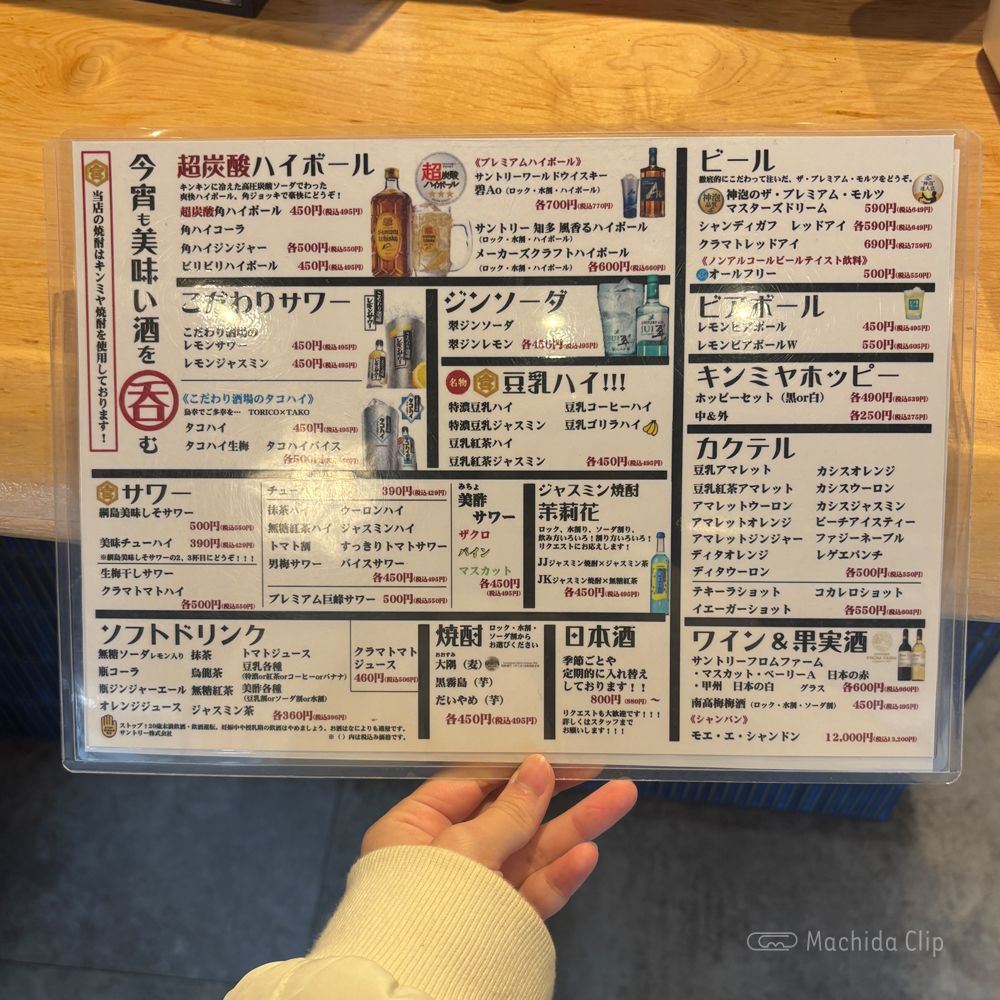 当店の焼酎はキンミヤ焼酎を使用しております!
今宵も美味い酒を
呑む
超炭酸ハイボール
キンキンに冷えた高圧炭酸ソーダでわった
爽快ハイボール。角ジョッキで豪快にどうぞ!
超炭酸角ハイボール 450円(税込495円)
角ハイコーラ
角ハイジンジャー 各500円(税込550円)
ビリビリハイボール 450円(税込495円)
超炭酸
ハイボール
《プレミアムハイボール》
サントリーワールドウイスキー
碧Ao(ロック・水割・ハイボール)
各700円(税込770円)
サントリー 知多 風香るハイボール
(ロック・水割・ハイボール)
メーカーズクラフトハイボール
(ロック・水割・ハイボール) 各600円(税込660円)
こだわりサワー
こだわり酒場の
レモンサワー 450円(税込495円)
レモンジャスミン 450円(税込495円)
《こだわり酒場のタコハイ》
鳥幸でご多幸を… TORICO×TAKO
タコハイ 450円(税込495円)
タコハイ生梅 タコハイバイス
各500円(税込550円)
ジンソーダ
翠ジンソーダ
翠ジンレモン 各450円(税込495円)
名物 豆乳ハイ!!!
特濃豆乳ハイ 豆乳コーヒーハイ
特濃豆乳ジャスミン 豆乳ゴリラハイ
豆乳紅茶ハイ
豆乳紅茶ジャスミン 各450円(税込495円)
サワー
綱島美味しそサワー
500円(税込550円)
美味チューハイ 390円(税込429円)
※綱島美味しそサワーの2、3杯目にどうぞ!!!
生梅干しサワー
クラマトマトハイ
各500円(税込550円)
チュー 390円(税込429円)
抹茶ハイ ウーロンハイ
無糖紅茶ハイ ジャスミンハイ
トマト割 すっきりトマトサワー
男梅サワー バイスサワー
各450円(税込495円)
プレミアム巨峰サワー 500円(税込550円)
みちょ
美酢
サワー
ザクロ
パイン
マスカット
各450円
(税込495円)
ジャスミン焼酎
茉莉花
ロック、水割り、ソーダ割り、
飲み方いろいろ!割り方いろいろ!
リクエストにお応えします!
JJジャスミン焼酎×ジャスミン茶
JKジャスミン焼酎×無糖紅茶
各450円(税込495円)
ソフトドリンク
無糖ソーダレモン入り 抹茶 トマトジュース
瓶コーラ 烏龍茶 豆乳各種
(特濃or紅茶orコーヒーorバナナ)
瓶ジンジャーエール 無糖紅茶 美酢各種
(豆乳割orソーダ割or水割)
オレンジジュース ジャスミン茶 各360円(税込396円)
クラマトマト
ジュース
460円(税込506円)
ストップ!20歳未満飲酒・飲酒運転。妊娠中や授乳期の飲酒はやめましょう。お酒はなによりも適量です。
サントリー株式会社 ※( )内は税込み価格です。
焼酎 ロック・水割・
ソーダ割から
お選びください
おおすみ
大隅(麦)
黒霧島(芋)
だいやめ(芋)
各450円(税込495円)
日本酒
季節ごとや
定期的に入れ替え
しております!!
800円(880円)~
リクエストも大歓迎です!!!
詳しくはスタッフまで
お願いします!!!
ビール
徹底的にこだわって注いだ、ザ・プレミアム・モルツをどうぞ。
神泡のザ・プレミアム・モルツ
マスターズドリーム 590円(税込649円)
シャンディガフ レッドアイ 各590円(税込649円)
クラマトレッドアイ 690円(税込759円)
《ノンアルコールビールテイスト飲料》
オールフリー 500円(税込550円)
ビアボール
レモンビアボール 450円(税込495円)
レモンビアボールW 550円(税込605円)
キンミヤホッピー
ホッピーセット(黒or白) 各490円(税込539円)
中&外 各250円(税込275円)
カクテル
豆乳アマレット カシスオレンジ
豆乳紅茶アマレット カシスウーロン
アマレットウーロン カシスジャスミン
アマレットオレンジ ピーチアイスティー
アマレットジンジャー ファジーネーブル
ディタオレンジ レゲエパンチ
ディタウーロン 各500円(税込550円)
テキーラショット コカレロショット
イエーガーショット 各550円(税込605円)
ワイン&果実酒
サントリーフロムファーム
・マスカット・ベーリーA 日本の赤
・甲州 日本の白 グラス 各600円(税込660円)
南高梅梅酒(ロック・水割・ソーダ割) 450円(税込495円)
《シャンパン》
モエ・エ・シャンドン 12,000円(税込13,200円)
Machida Clip